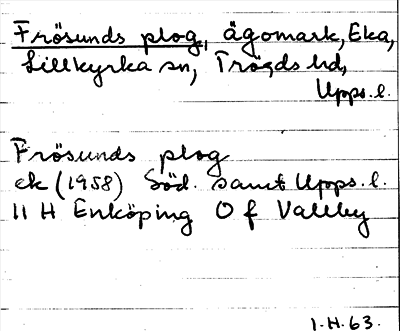 Frösunds plog, ägomark, Eka,
Lillkyrka sn, Trögds hd,
Upps. l.
Frösunds plog
ek (1958) Söd. samt Upps. l.
11 H Enköping O f Vallby
1.H.63.